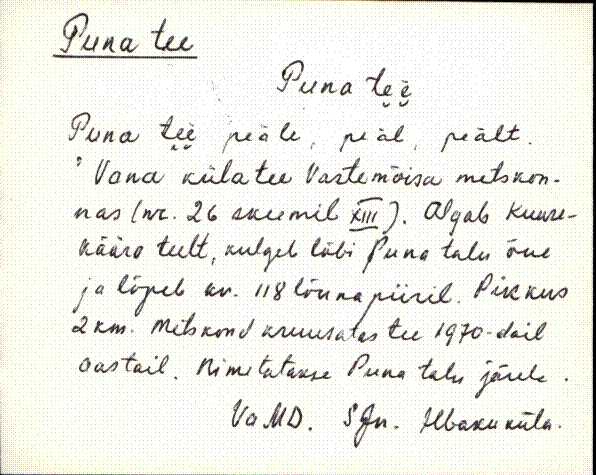 Puna tee
Puna tee̮
Puna tee̮ peäle, peäl, peält.
Vana külatee Vastemõisa metskon-
nas (nr. 26 skeemil XIII). Algab Kuuse-
kääro teelt, kulgeb läbi Puna talu õue
ja lõpeb kv. 118 lõunapiiril. Pikkus
2 km. Metskond kruusatas tee 1970-dail
aastail. Nimetatakse Puna talu järele.
VaMD. SJn.